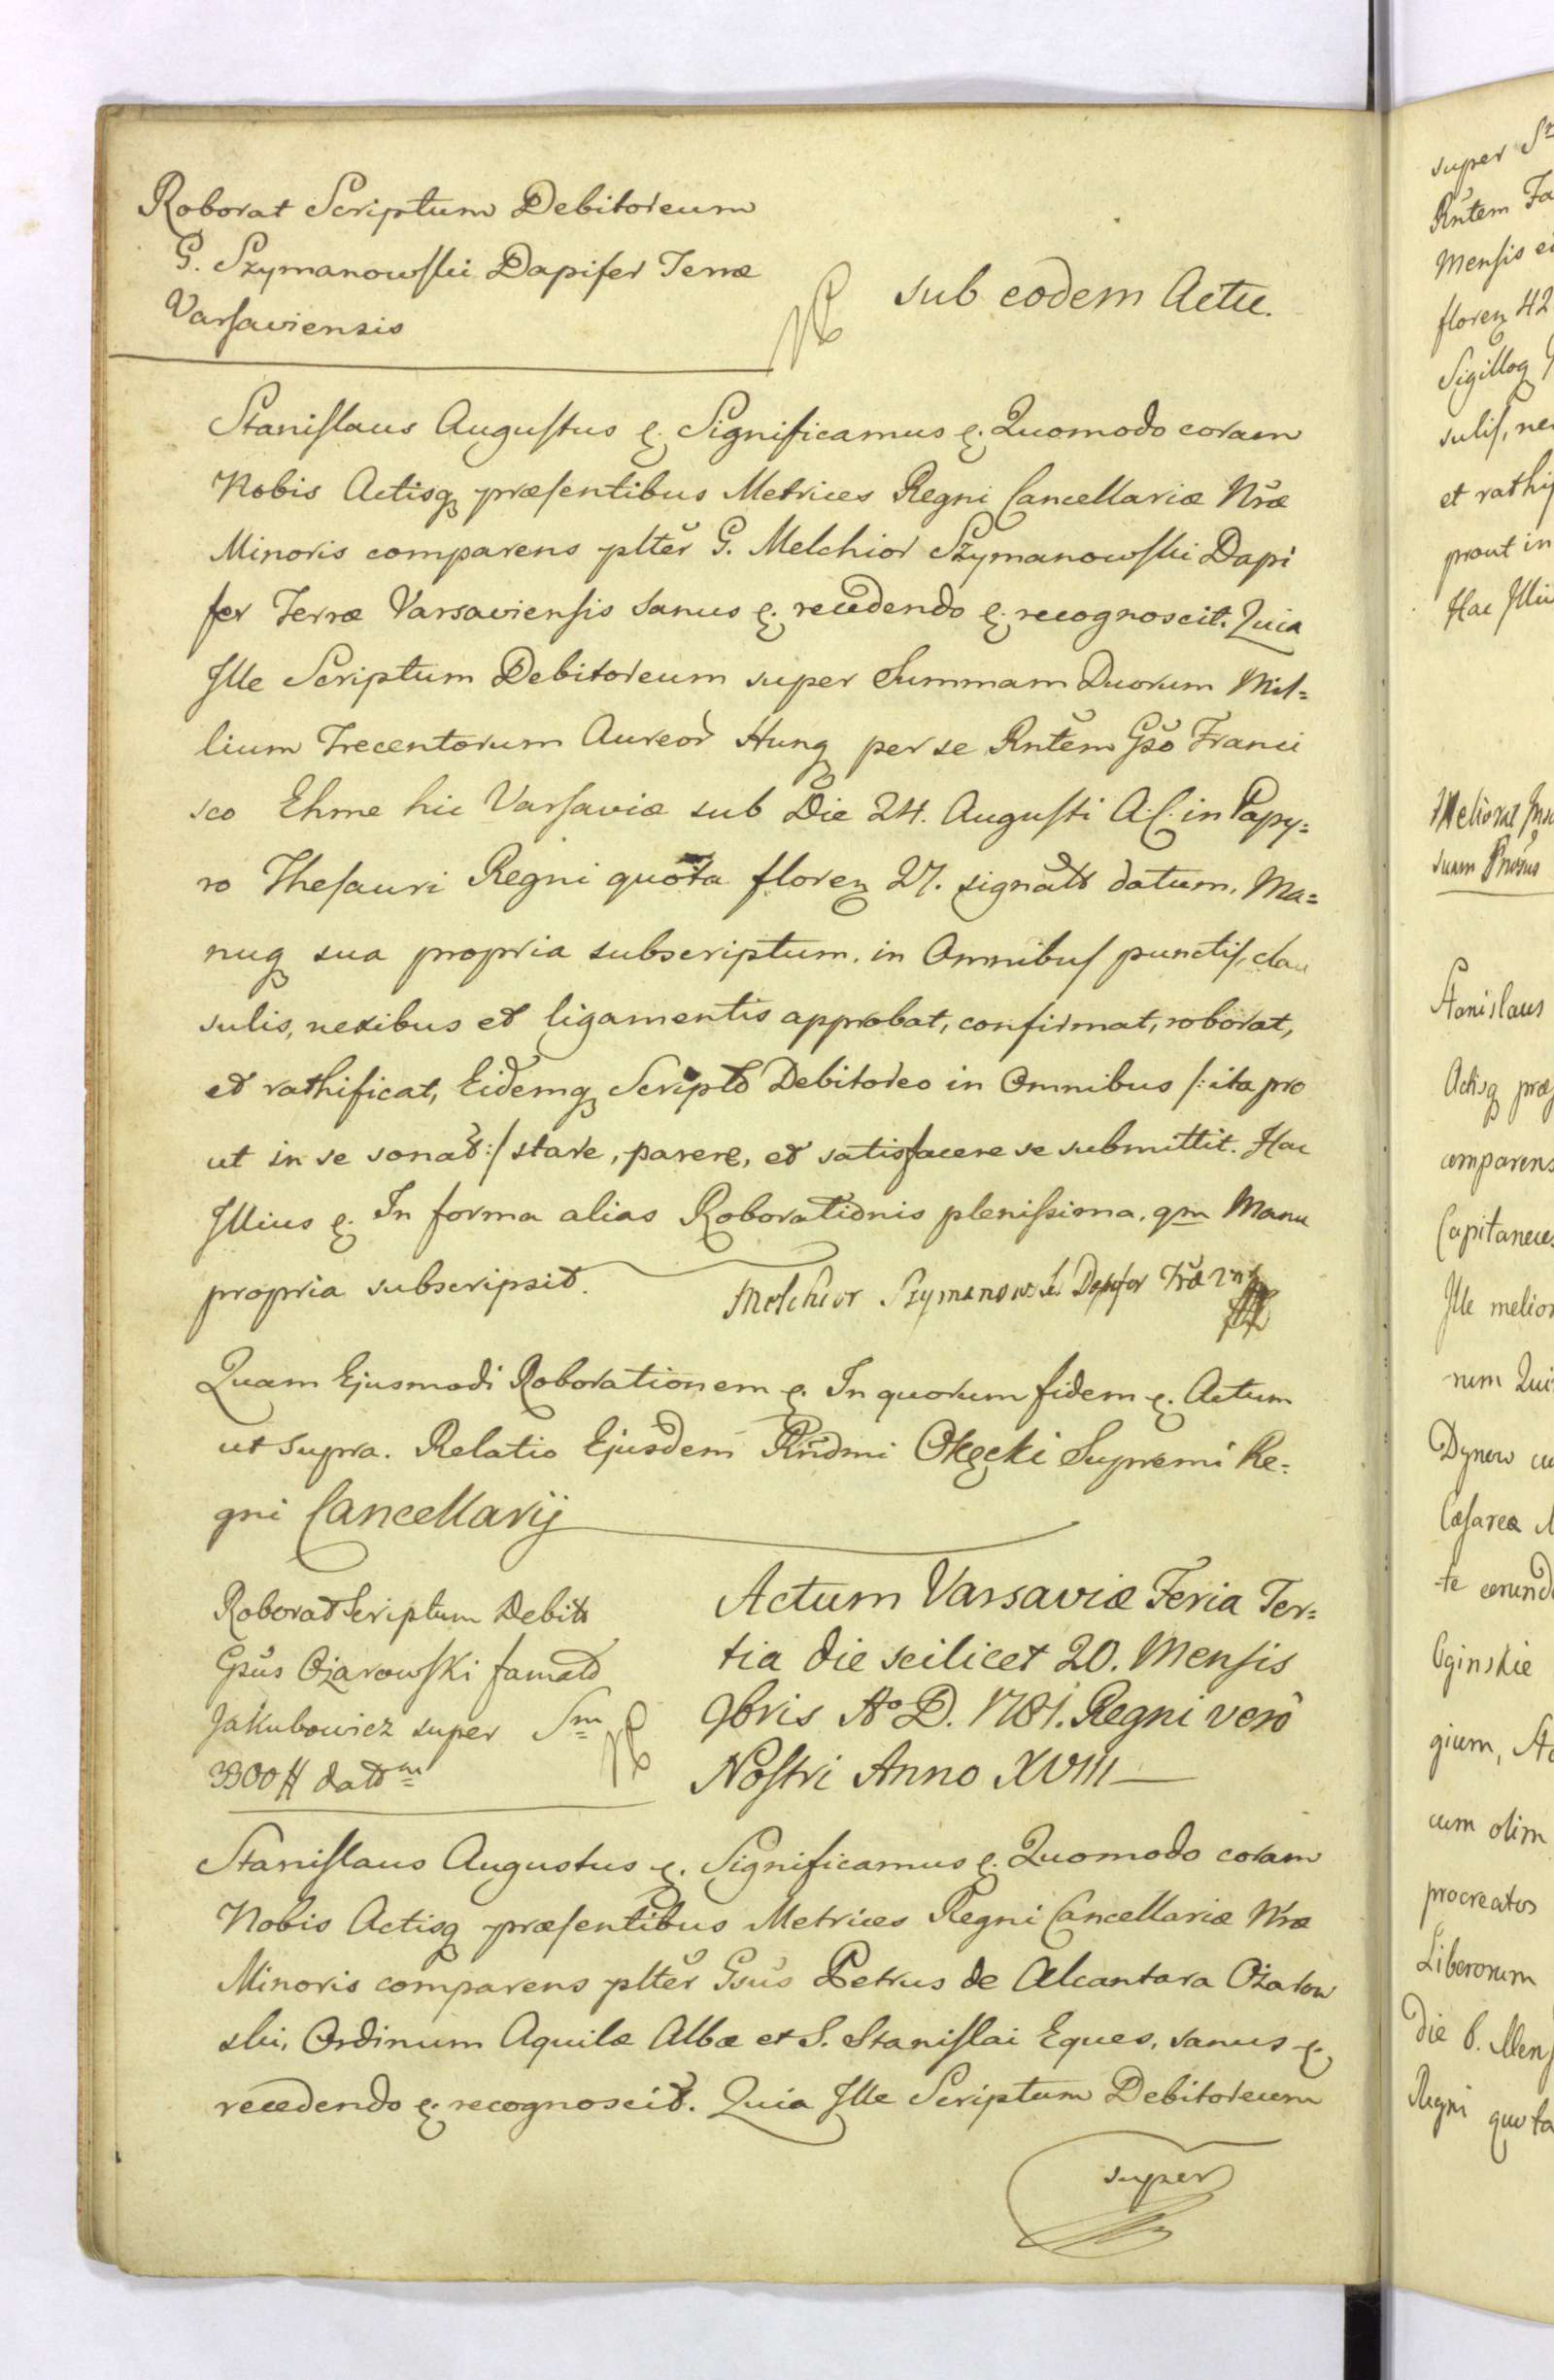 Roborat Scriptum Debitoreum
G. Szymanowski Dapifer Terræ
Varsaviensis
sub eodem Actu.
Stanislaus Augustus &. Significamus &. Quomodo coram
Nobis Actisq præsentibus Metrices Regni Cancellariæ Nræ
Minoris comparens plter G. Melchior Szymanowski Dapi
fer Terræ Varsaviensis sanus &. recedendo &. recognoscit. Quia
Ille Scriptum Debitoreum super Summam Duorum Mil=
lium Trecentorum Aureor Hung per se Rntem Gso Franci
sco Ehme hic Varsaviæ sub Die 24. Augusti A. C. in Papy=
ro Thesauri Regni quota floren 27. signato datum, Ma=
nuq sua propria subscriptum, in Omnibus punctis, clau
sulis, nexibus et ligamentis approbat, confirmat, roborat,
et rathificat, Eidemq Scripto Debitoreo in Omnibus /: ita pro
ut in se sonat :/ stare, parere, et satisfacere se submittit. Hac
Illius &. In forma alias Roborationis plenissima, qm Manu
propria subscripsit.
Melchior Szymanowski Dapifer Træ
Quam Ejusmodi Roborationem &. In quorum fidem &. Actum
ut supra. Relatio Ejusdem Rndmi Okęcki Supremi Re=
gni Cancellarij
Roborat Scriptum Debit
Gsus Ożarowski famato
Jakubowicz super Sm
3300 # dat m
Actum Varsaviæ Feria Ter=
tia die scilicet 20. Mensis
9bris Ao D. 1781. Regni vero
Nostri Anno XVIII
Stanislaus Augustus &. Significamus &. Quomodo coram
Nobis Actisq præsentibus Metrices Regni Cancellariæ Nræ
Minoris comparens plter Gsus Petrus de Alcantara Ożarow
ski, Ordinum Aquilæ Albæ et S. Stanislai Eques, sanus &.
recedendo &. recognoscit. Quia Ille Scriptum Debitoreum
super
super
Rntem
Mensis
floren 42
Sigilloq
sulis,
et
prout in
Hac
Meliorat
suam
Stanislaus
Actisq
comparens
Ille
num
Dynow
Cæsarea
te
Oginskie
gium,
cum olim
procreatos
Liberorum
die 6.
Regni quota